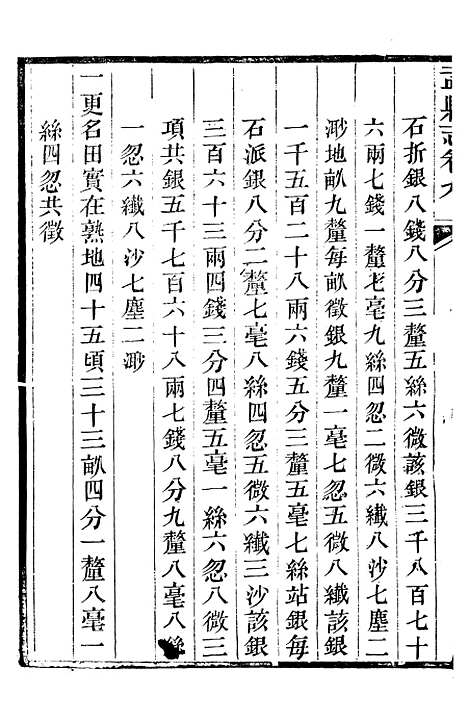 石折銀八錢八分三釐五絲六微該銀三千八百七十
六兩七錢一釐七毫九絲四忽二微六纖八沙七塵二
渺地畝九釐每畝徵銀九釐一毫七忽五微八纖該銀
一千五百二十八兩六錢五分三釐五毫七絲站銀每
石派銀八分二釐七毫八絲四忽五微六纖三沙該銀
三百六十三兩四錢三分四釐五毫一絲六忽八微三
項共銀五千七百六十八兩七錢八分九釐八毫八絲
一忽六纖八沙七塵二渺
一更名田實在熟地四十五頃三十三畝四分一釐八毫一
絲四忽共徵